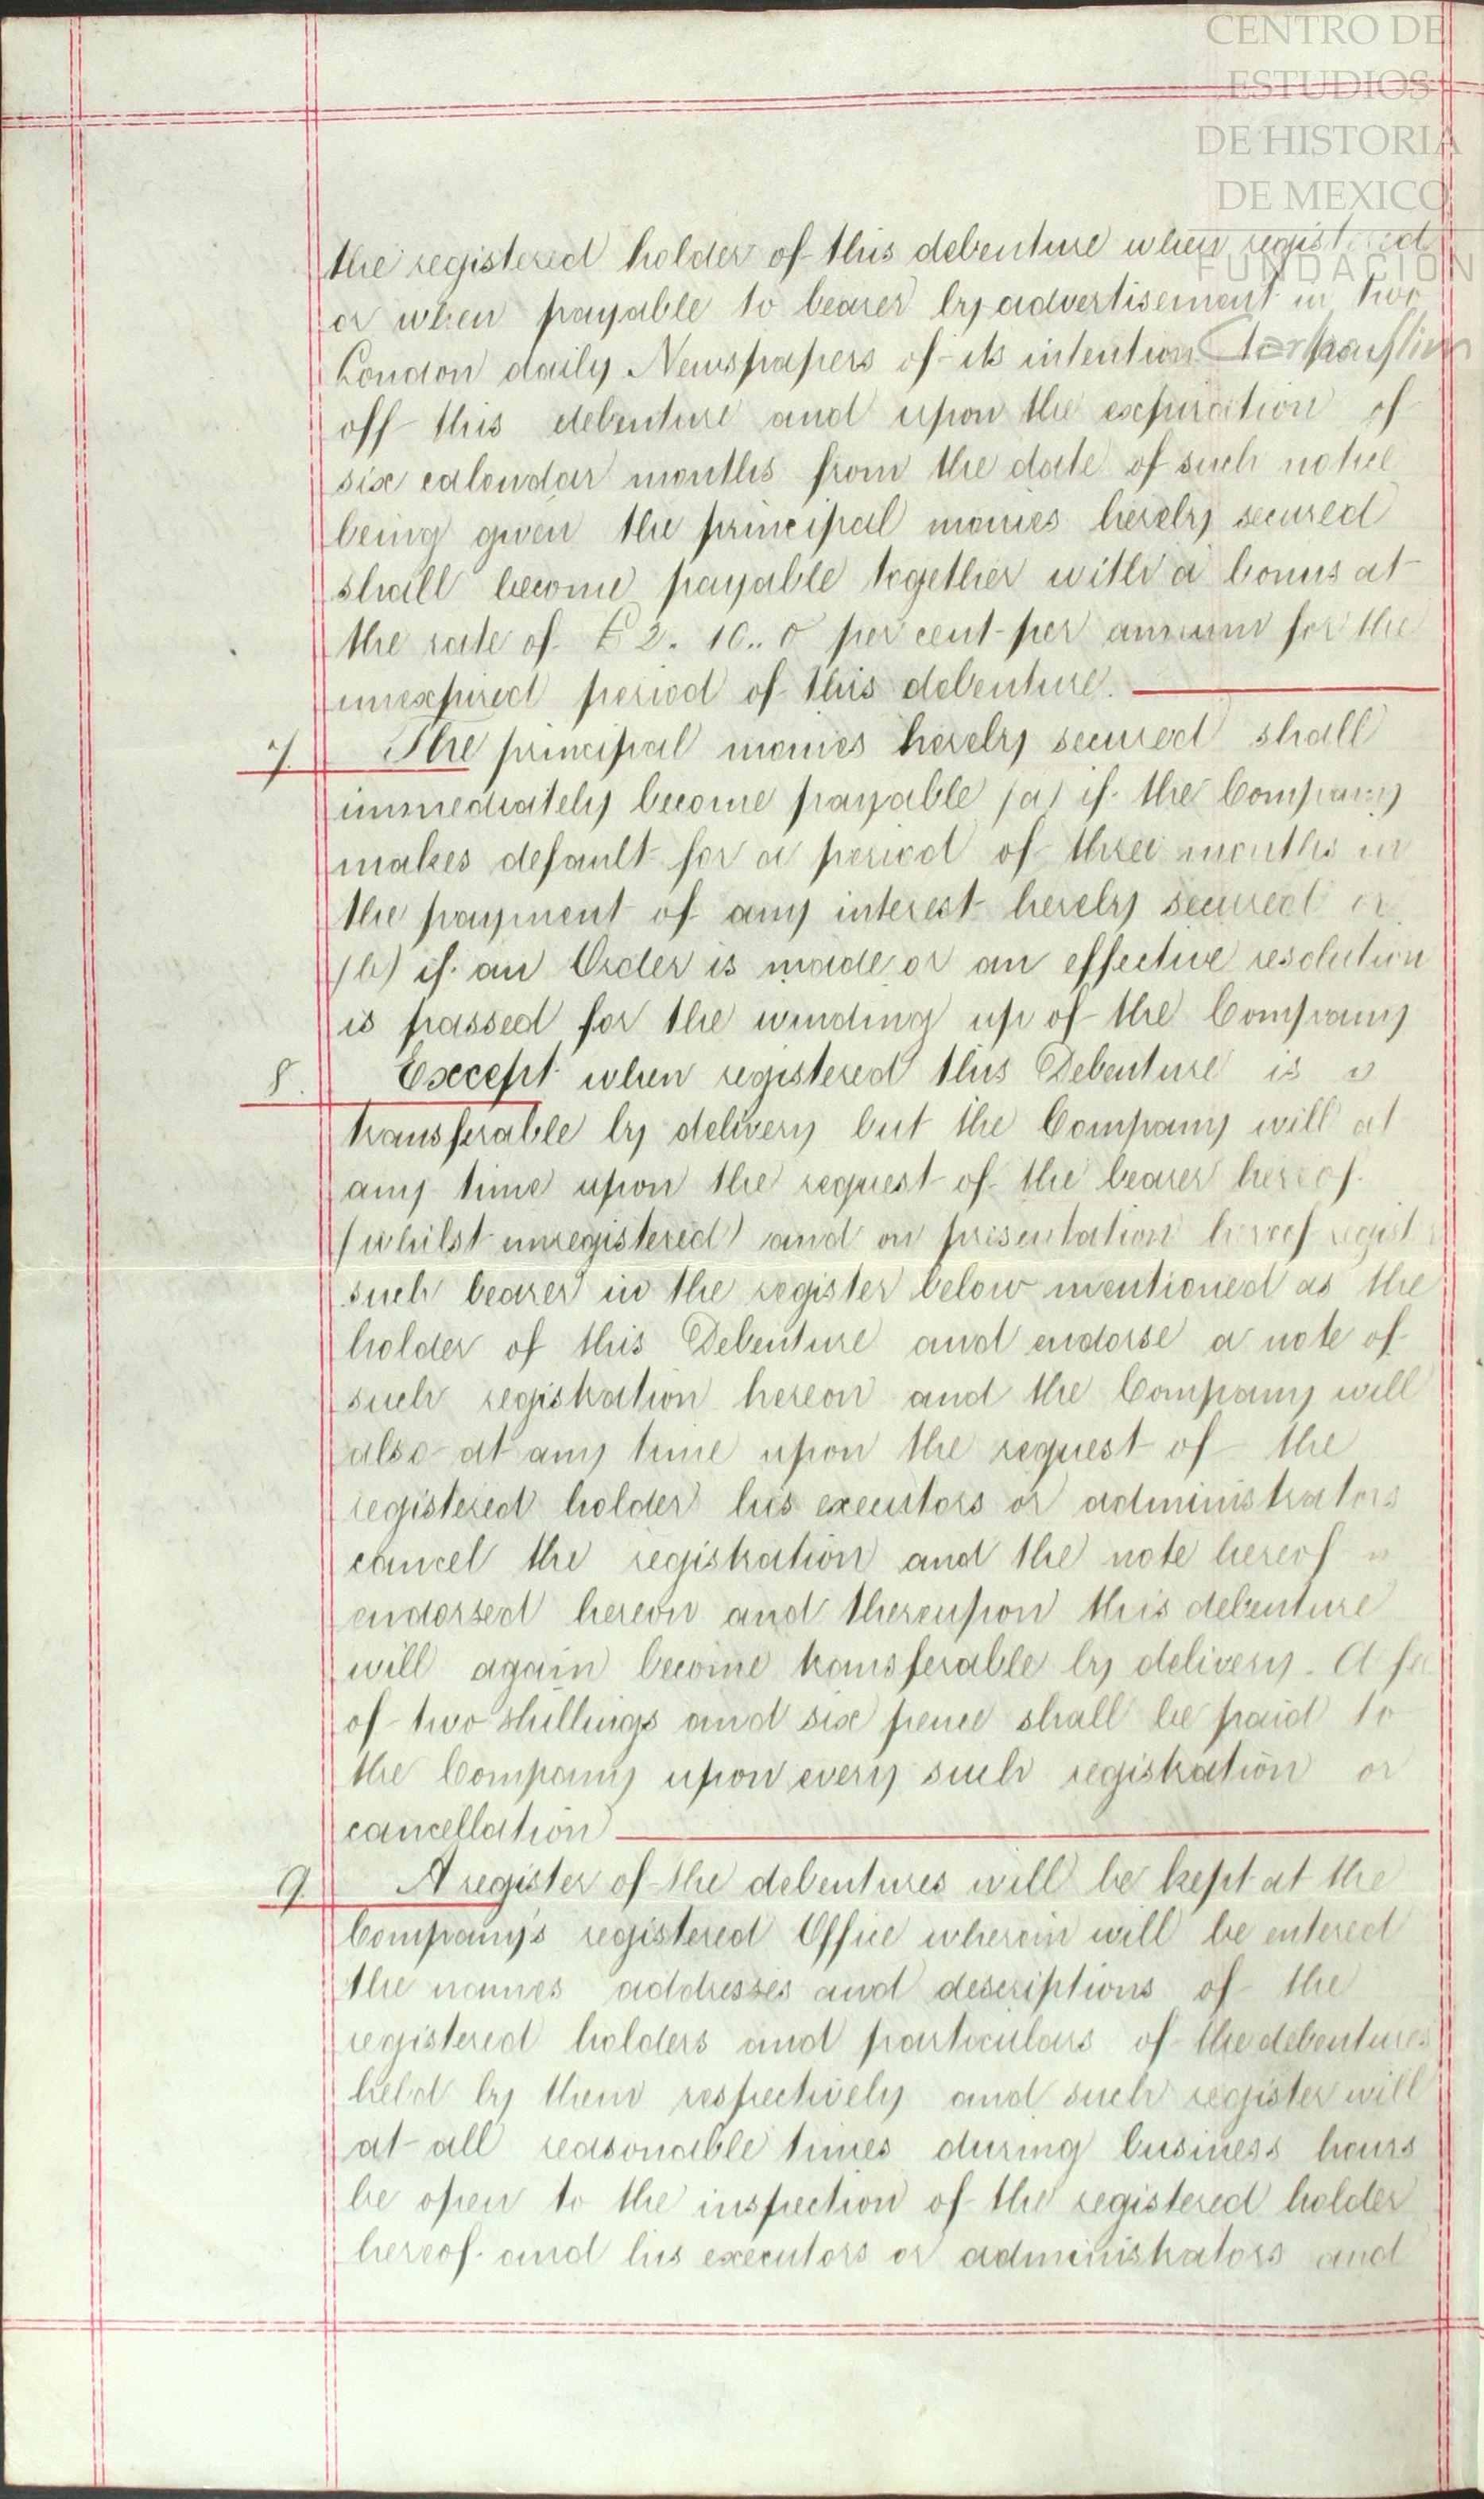 CENTRO DE
ESTUDIOS
DE HISTORIA
DE MEXICO
FUNDACIÓN
the registered holder of this debenture when registered
or when payable to bearer by advertisement in two
London daily Newspapers of its intention to pay
off this debenture and upon the expiration of
six calendar months from the date of such notice
being given the principal monies hereby secured
shall become payable together with a bonus at
the rate of £2.10..0 per cent per annum for the
unexpired period of this debenture.
7. The principal monies hereby secured shall
immediately become payable (a) if the Company
makes default for a period of three months in
the payment of any interest hereby secured or
(b) if an Order is made or an effective resolution
is passed for the winding up of the Company
8. Except when registered this Debenture is
transferable by delivery but the Company will at
any time upon the request of the bearer hereof
(whilst unregistered) and on presentation hereof register
such bearer in the register below mentioned as the
holder of this Debenture and endorse a note of
such registration hereon and the Company will
also at any time upon the request of the
registered holder his executors or administrators
cancel the registration and the note hereof
endorsed hereon and thereupon this debenture
will again become transferable by delivery. A fee
of two shillings and six pence shall be paid to
the Company upon every such registration or
cancellation
9. A register of the debentures will be kept at the
Company's registered Office wherein will be entered
the names addresses and descriptions of the
registered holders and particulars of the debentures
held by them respectively and such register will
at all reasonable times during business hours
be open to the inspection of the registered holder
hereof and his executors or administrators and